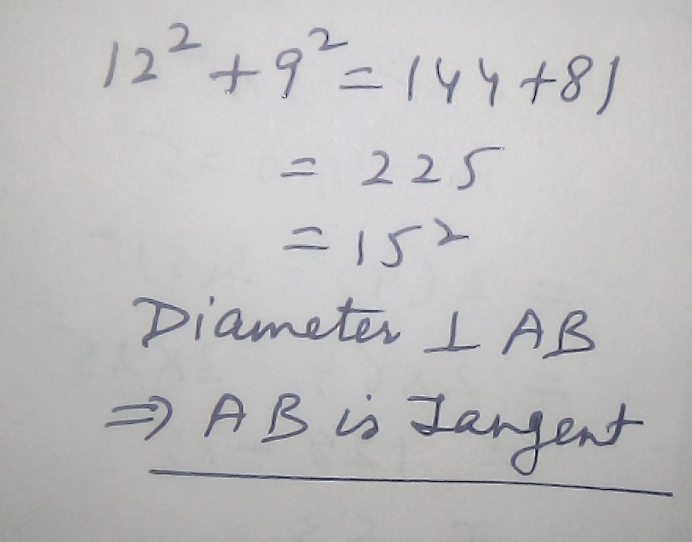 12² + 9² = 144 + 81
= 225
= 15²
Diameter ⊥ AB
⇒ AB is Tangent